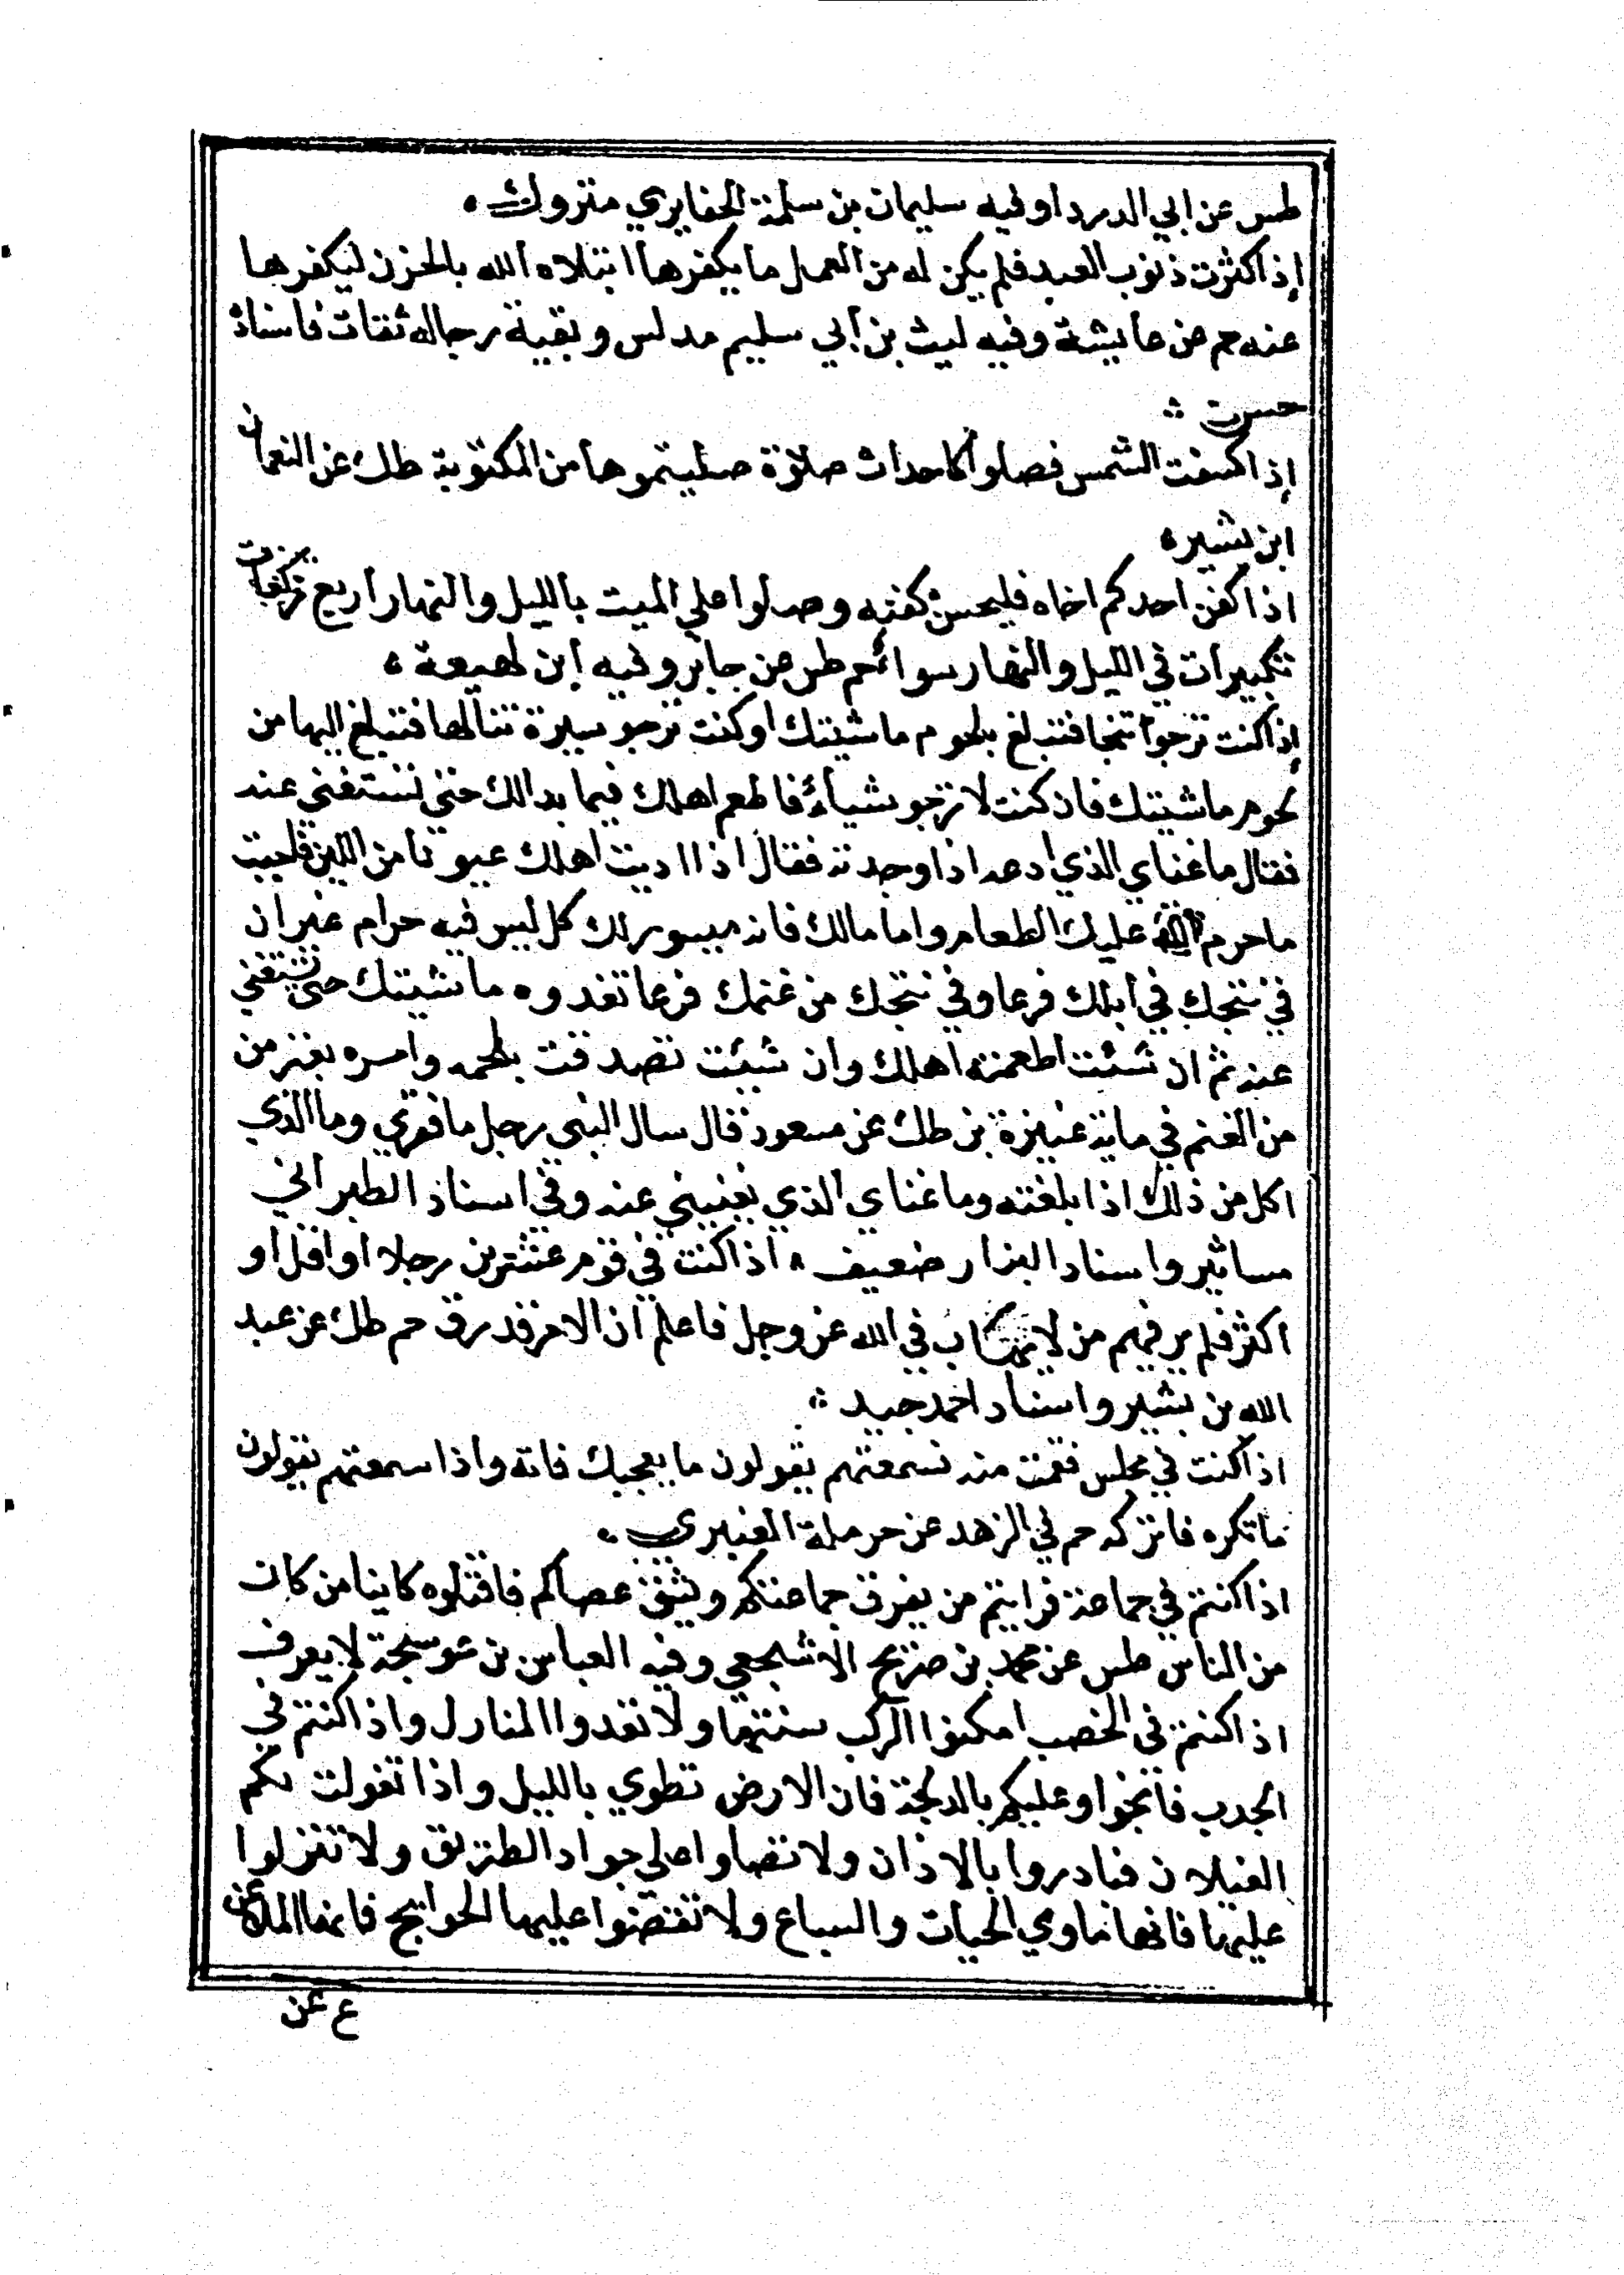 طس عن ابي الدرداو فيه سليمان بن سلمة الخبايري متروك
إذا كثرت ذنوب العبد فلم يكن له من العمل ما يكفرها ابتلاه الله بالحزن ليكفرها
عنه حم عن عايشة وفيه ليث بن أبي سليم مدلس وبقية رجاله ثقات فاسناده
حسن
إذا كسفت الشمس فصلوا كاحداث صلاة صليتموها من المكتوبة طك عن النعمان
ابن بشير
اذا كفن احدكم اخاه فليحسن كفنه وصلوا علي الميت بالليل والنهار اربع
تكبيرات في الليل والنهار سواء حم طس عن جابر وفيه ابن لهيعة
إذا كنت ترجوا نتجا فتبلغ بلحوم ماشيتك او كنت ترجو سيرة تنالها فتبلغ اليها من
لحوم ماشيتك فان كنت لا ترجو شياء فاطعم اهلك فيما بدالك حتي تستغني عنه
فقال ما غناي الذي ادعه اذا وجدته فقال اذا اديت اهلك غبوقا من اللبن
ما حرم الله عليك الطعام واما مالك فانه ميسور لك كل ليس فيه حرام غير ان
في نتجك في أبلك فرعا وفي نتجك من غنمك فرعا تغدوه ماشيتك حتي تستغني
عنه ثم ان شئت اطعمته اهلك وان شئت تصدقت بلحمه وامره بعتر من
من الغنم في ماية عتيرة بن طك عن مسعود قال سال النبي رجل ما فوري وما الذي
اكل من ذلك اذا بلغته وما غناي الذي يغنيني عنه وفي اسناد الطبراني
مساتير واسناد البزار ضعيف اذا كنت في قوم عشرين رجلا او اقل او
اكثر فلم ير فيهم من لا يهاب في الله عز وجل فاعلم ان الامر قد رق حم طك عن عبد
الله بن بشير واسناد احمد جيد
اذا كنت في مجلس فقمت منه فسمعتهم يقولون ما يعجبك فاته واذا سمعتهم يقولون
ما تكره فاتركه حم في الزهد عن حرملة العنبري
اذا كنتم في جماعة فرايتم من يفرق جماعتكم ويشق عصاكم فاقتلوه كاينا من كان
من الناس طس عن محمد بن ضريح الاشجعي وفيه العباس بن عوسجة لا يعرف
اذا كنتم في الخصب امكنوا الركب سنتها ولا تعدوا المنازل واذا كنتم في
الجدب فانجوا وعليكم بالدلجة فان الارض تطوي بالليل واذا تغولت بكم
الغيلان فنادروا بالاذان ولا تصلوا علي جواد الطريق ولا تنزلوا
عليها فانها ماوي الحيات والسباع ولا تقضوا عليها الحوايج فانها الملاعن
ع عن